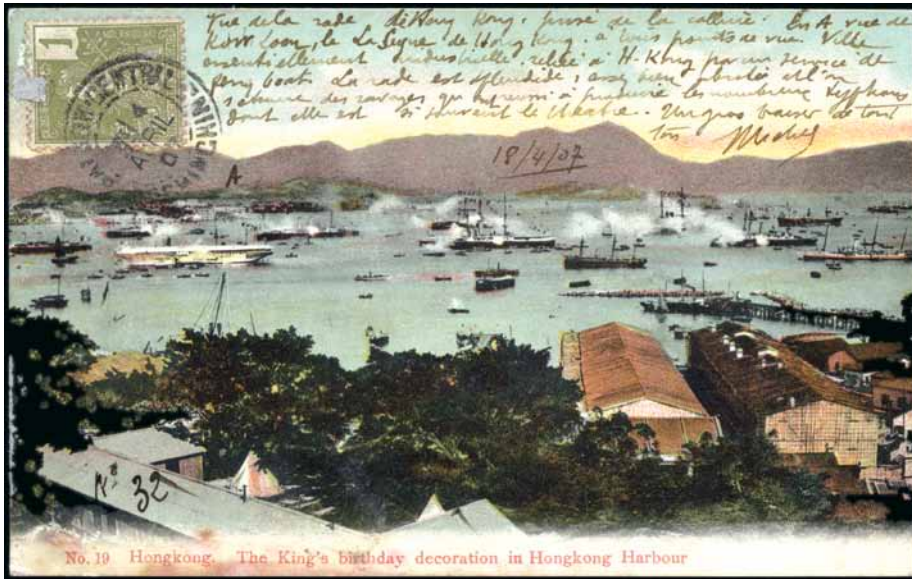 Vue de la rade de Hong Kong. prise de la colline. En A vue de
Kow Loon, le La Seyne de Hong Kong. à tous points de vue. Ville
essentiellement industrielle, reliée à H-Kong par un service de
ferry boat. La rade est splendide, assez bien abritée et l'on
des ravages qu' à produire les nombreux typhons
dont elle est si souvent le théâtre. Un gros baiser de tout
ton Michel
18/4/07
A
1
CENTRAL
AVRIL
N° 32
No. 19 Hongkong. The King's birthday decoration in Hongkong Harbour